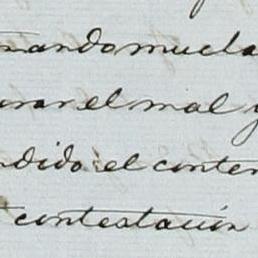 nando mucha
urar el mal y
ndido el conten
contestación